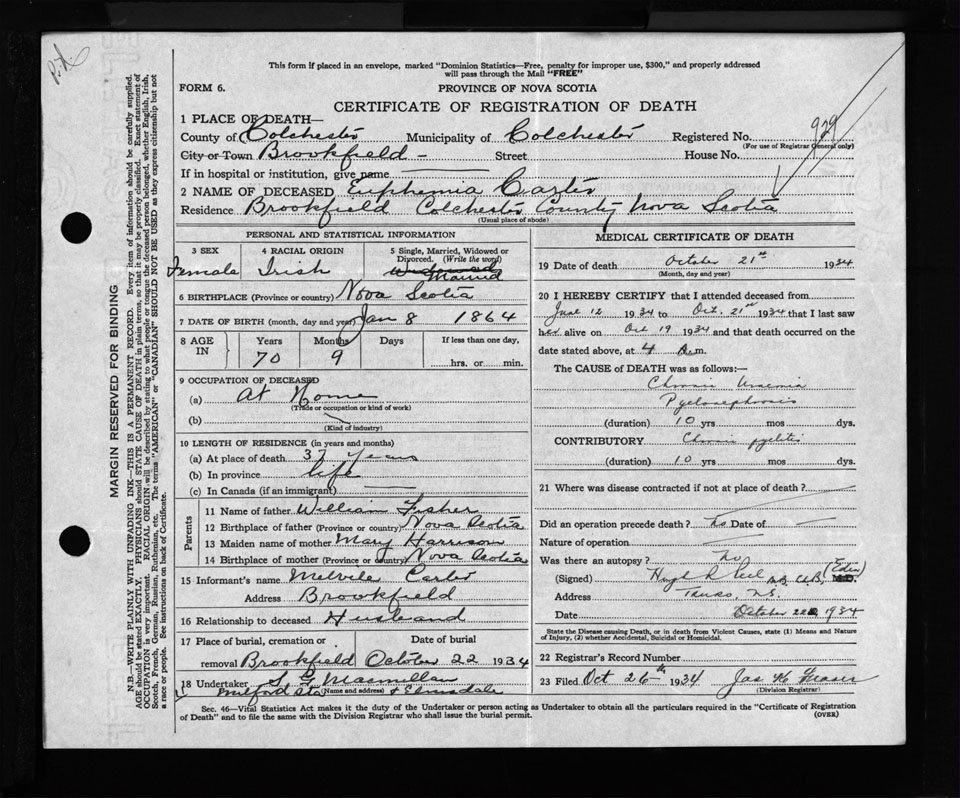 This form if placed in an envelope, marked "Dominion Statistics—Free, penalty for improper use, $300," and properly addressed
will pass through the Mail "FREE"
FORM 6.
PROVINCE OF NOVA SCOTIA
CERTIFICATE OF REGISTRATION OF DEATH
1 PLACE OF DEATH—
County of Colchester Municipality of Colchester Registered No. 929
(For use of Registrar General only)
City or Town Brookfield - Street House No.
If in hospital or institution, give name
2 NAME OF DECEASED Euphemia Carter
Residence Brookfield Colchester County Nova Scotia
(Usual place of abode)
PERSONAL AND STATISTICAL INFORMATION
3 SEX Female
4 RACIAL ORIGIN Irish
5 Single, Married, Widowed or Divorced. (Write the word) Widowed Married
6 BIRTHPLACE (Province or country) Nova Scotia
7 DATE OF BIRTH (month, day and year) Jan 8 1864
8 AGE IN Years Months Days If less than one day,
70 9 hrs. or min.
9 OCCUPATION OF DECEASED
(a) At Home
(Trade or occupation or kind of work)
(b)
(Kind of industry)
10 LENGTH OF RESIDENCE (in years and months)
(a) At place of death 37 years
(b) In province life
(c) In Canada (if an immigrant)
Parents
11 Name of father William Fisher
12 Birthplace of father (Province or country) Nova Scotia
13 Maiden name of mother Mary Harrison
14 Birthplace of mother (Province or country) Nova Scotia
15 Informant's name Melville Carter
Address Brookfield
16 Relationship to deceased Husband
17 Place of burial, cremation or removal Brookfield
Date of burial October 22 1934
18 Undertaker S G Macmillan
(Name and address) Milford Sta & Elmsdale
MEDICAL CERTIFICATE OF DEATH
19 Date of death October 21st 1934
(Month, day and year)
20 I HEREBY CERTIFY that I attended deceased from
June 12 1934 to Oct. 21st 1934 that I last saw
her alive on Oct 19 1934 and that death occurred on the
date stated above, at 4 a.m.
The CAUSE OF DEATH was as follows:—
Chronic Uraemia
Pyelonephrosis
(duration) 10 yrs mos dys.
CONTRIBUTORY Chronic pyelitis
(duration) 10 yrs mos dys.
21 Where was disease contracted if not at place of death?
Did an operation precede death? No Date of
Nature of operation
Was there an autopsy? No
(Signed) Hugh R Peel M.B. Ch.B. (Edin) M.D.
Address Truro, N.S.
Date October 22 1934
State the Disease causing Death, or in death from Violent Causes, state (1) Means and Nature
of Injury, (2) whether Accidental, Suicidal or Homicidal.
22 Registrar's Record Number
23 Filed Oct 26th 1934
(Division Registrar)
Sec. 46—Vital Statistics Act makes it the duty of the Undertaker or person acting as Undertaker to obtain all the particulars required in the "Certificate of Registration
of Death" and to file the same with the Division Registrar who shall issue the burial permit.
(OVER)
MARGIN RESERVED FOR BINDING
N.B.—WRITE PLAINLY WITH UNFADING INK—THIS IS A PERMANENT RECORD. Every item of information should be carefully supplied.
AGE should be stated EXACTLY. PHYSICIANS should STATE CAUSE OF DEATH in plain terms, so that it may be properly classified. Exact statement of
OCCUPATION is very important. RACIAL ORIGIN: will be described by stating to what people or tongue the deceased person belonged, whether English, Irish,
Scotch, French, German, Russian, Ruthenian, etc. The terms "AMERICAN" or "CANADIAN" SHOULD NOT BE USED as they express citizenship but not
a race or people. See instructions on back of Certificate.